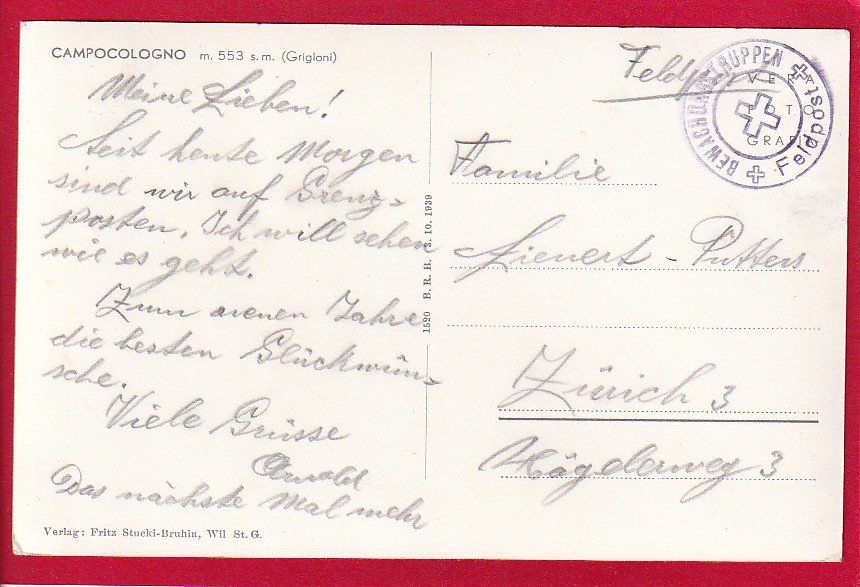 CAMPOCOLOGNO m. 553 s.m. (Grigioni)
Meine Lieben!
Seit heute Morgen
sind wir auf Grenz-
posten. Ich will sehen
wie es geht.
Zum neuen Jahre
die besten Glückwün-
sche.
Viele Grüsse
Arnold
Das nächste Mal mehr
Verlag: Fritz Stucki-Bruhin, Wil St. G.
1520 B. R. B. 3. 10. 1939
Feldpost
BEWACHUNGSTRUPPEN
Feldpost
VERA
FOTO
GRAFIA
Familie
Lienert - Putters
Zürich 3
Hägelerweg 3